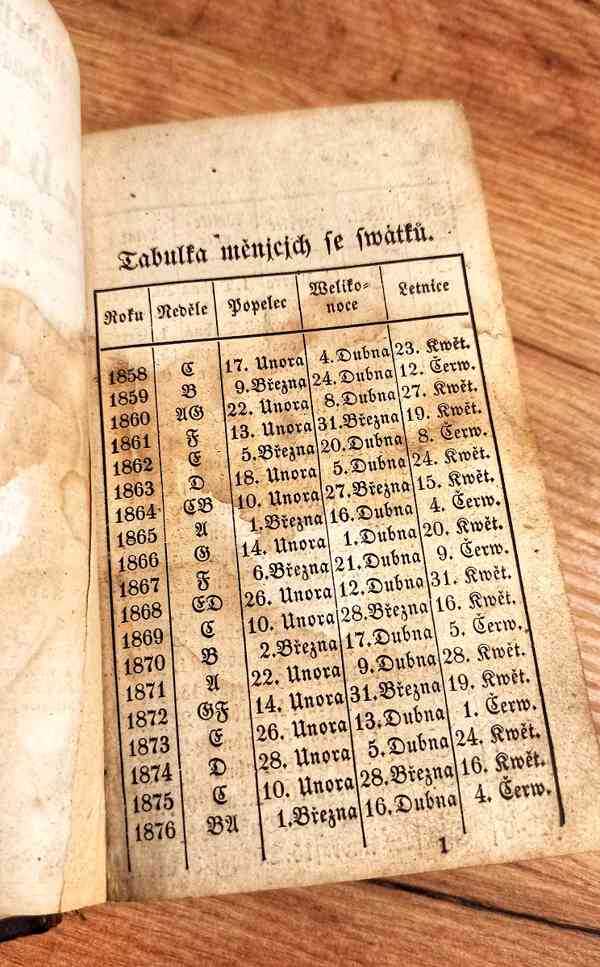 Tabulka měnjcjch se swátků.
Roku Neděle Popelec Weliko=noce Letnice
1858 C 17. Unora 4.Dubna 23. Kwět.
1859 B 9.Března 24.Dubna 12. Čerw.
1860 AG 22. Unora 8.Dubna 27. Kwět.
1861 F 13. Unora 31.Března 19. Kwět.
1862 E 5.Března 20.Dubna 8. Čerw.
1863 D 18. Unora 5.Dubna 24. Kwět.
1864 CB 10. Unora 27.Března 15. Kwět.
1865 A 1.Března 16.Dubna 4. Čerw.
1866 G 14. Unora 1.Dubna 20. Kwět.
1867 F 6.Března 21.Dubna 9. Čerw.
1868 ED 26. Unora 12.Dubna 31. Kwět.
1869 C 10. Unora 28.Března 16. Kwět.
1870 B 2.Března 17.Dubna 5. Čerw.
1871 A 22. Unora 9.Dubna 28. Kwět.
1872 GF 14. Unora 31.Března 19. Kwět.
1873 E 26. Unora 13.Dubna 1. Čerw.
1874 D 28. Unora 5.Dubna 24. Kwět.
1875 C 10. Unora 28.Března 16. Kwět.
1876 BA 1.Března 16.Dubna 4. Čerw.
1